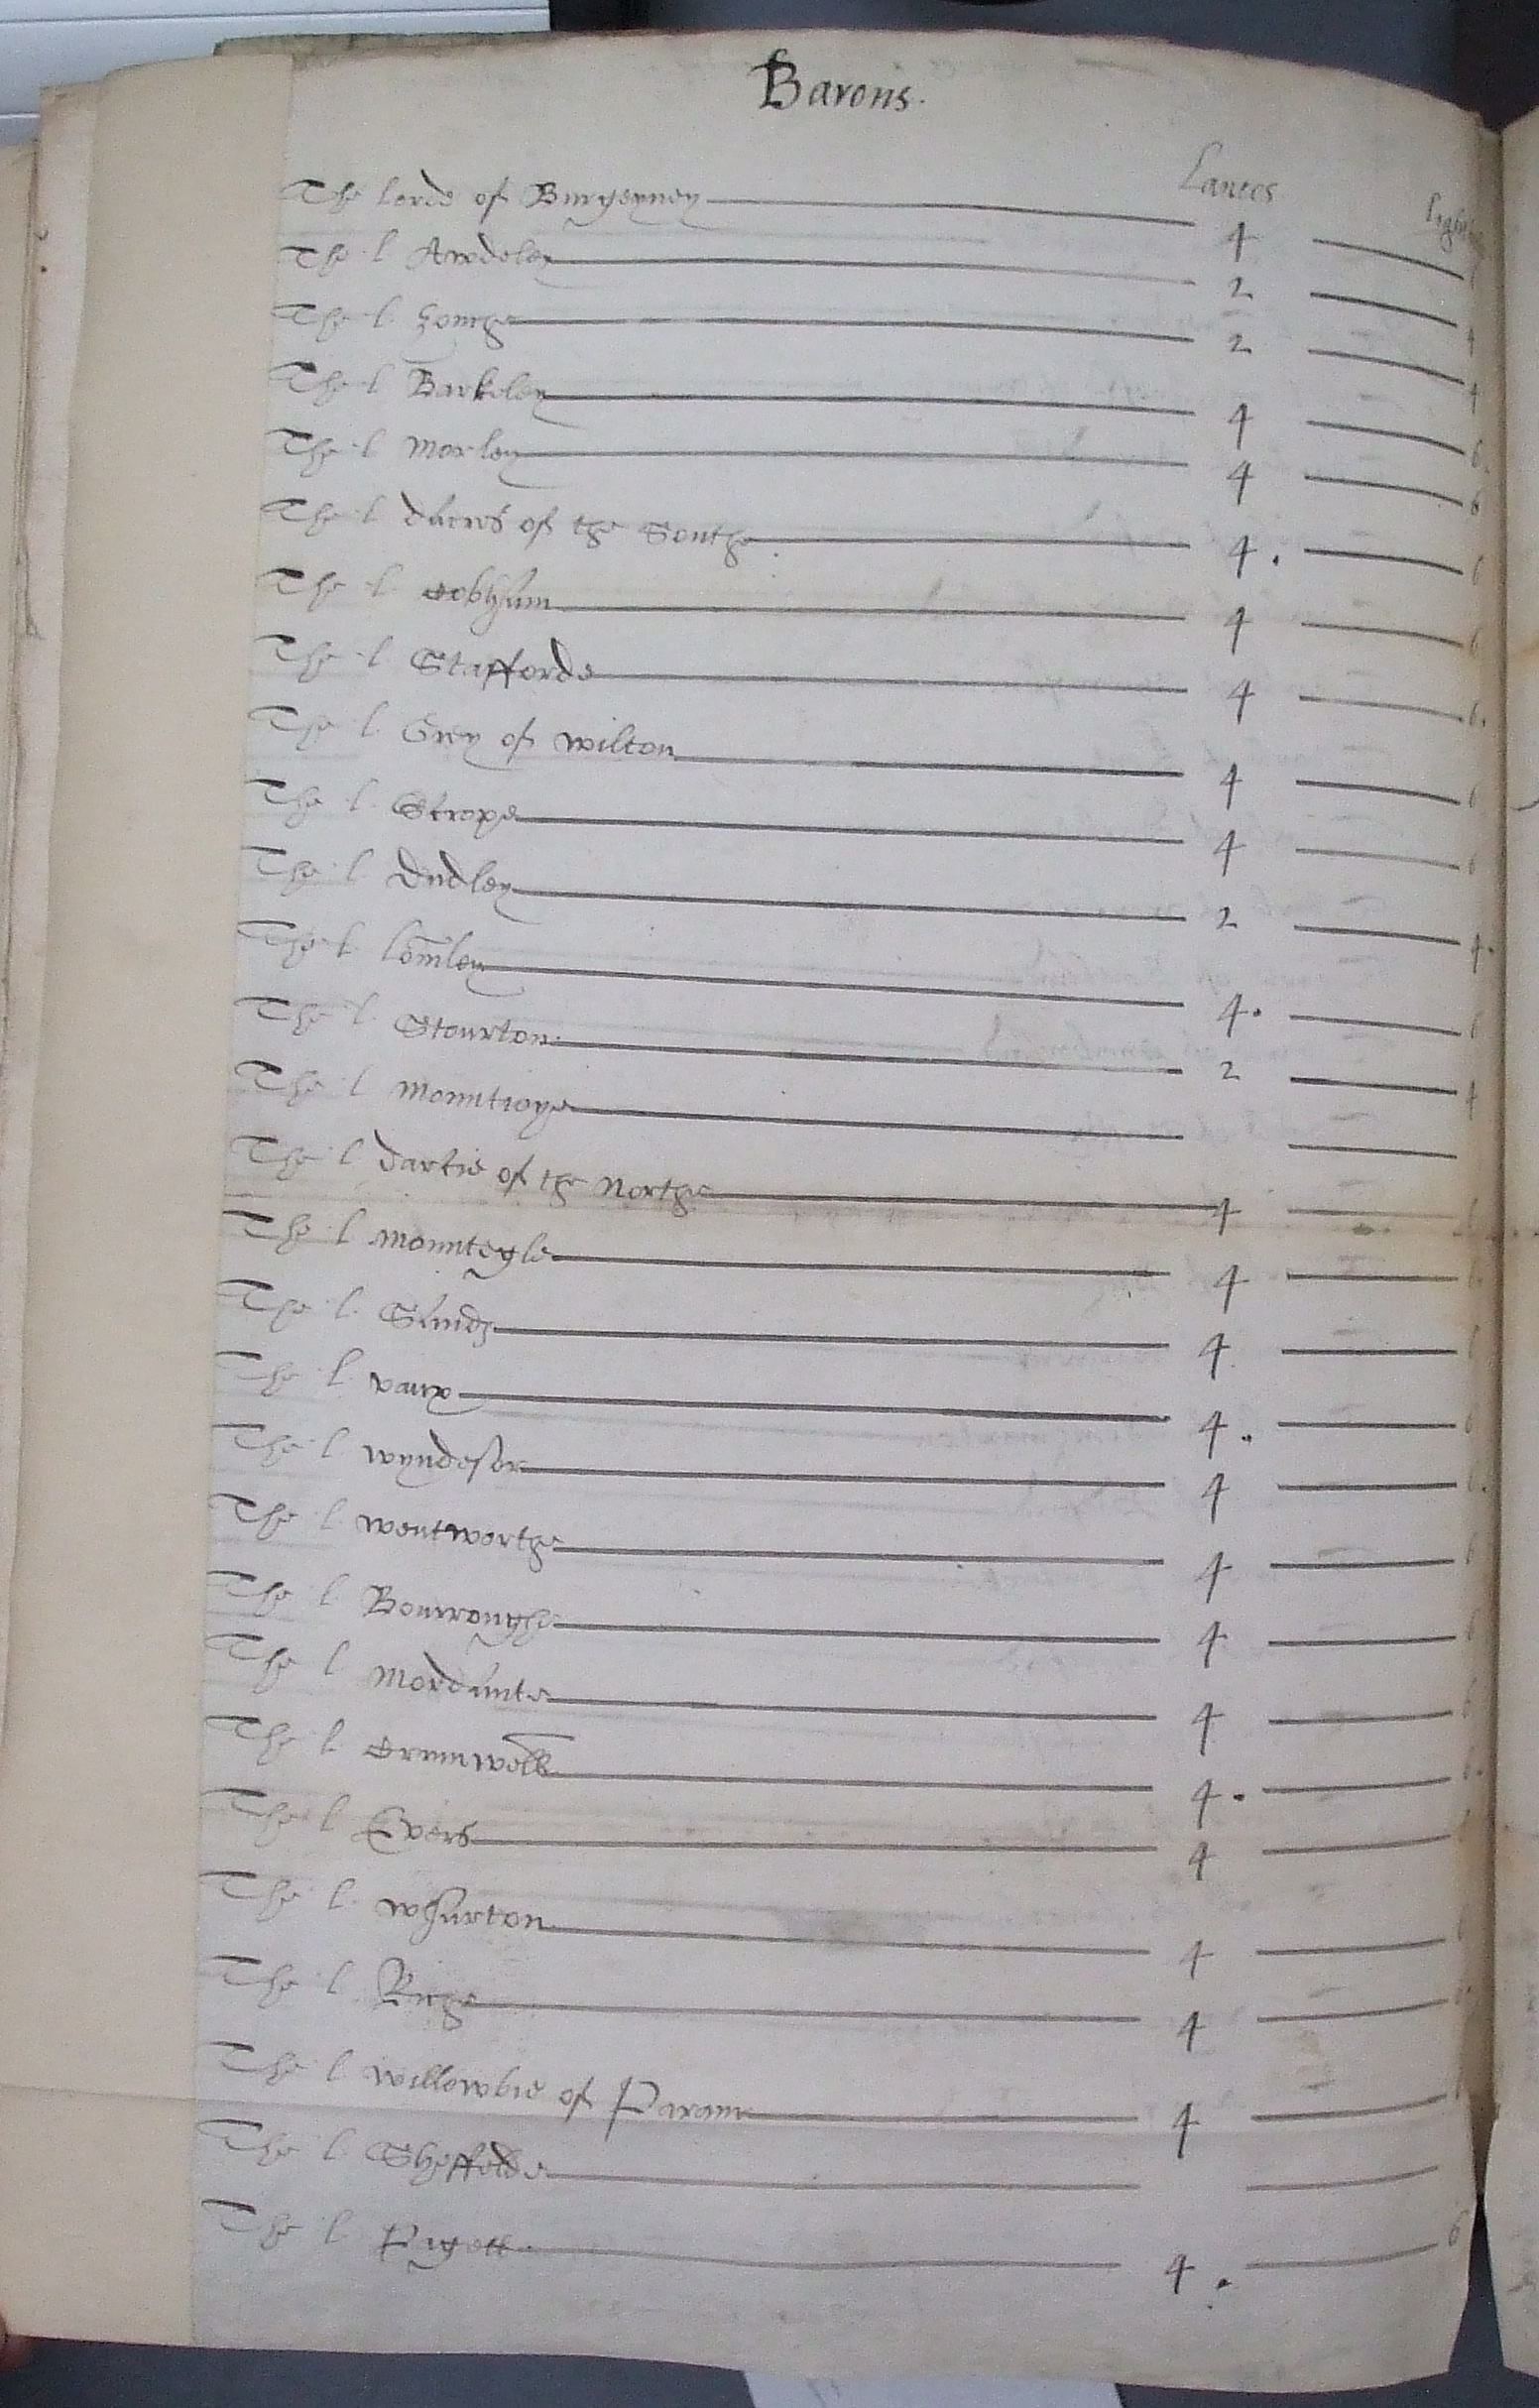 Barons.
Lances Light
The lorde of Burgeyney 4
The l Awdeley 2 4
The l. Zouche 2 4
The l Barkeley 4 6.
The l Morley 4 6
The l dacres of the Southe 4. 6
The l. Cobham 4 6
The l Stafforde 4 6.
The l. Grey of wilton 4 6
The l. Scrope 4 6
The l Dudley 2 4.
The l. lomley 4. 6
The l. Stourton 2 4
The l Mountioye
The l darcie of the Northe 4 6
The l Mounteyle 4 6
The l. Sandz 4 6
The l. vaux 4. 6
The l wyndesor 4 6.
The l wentworthe 4 6
The l Bourroughe 4 6
The l Mordante 4 6
The l. Crumwell 4. 6.
The l Evers 4 6
The l. wharton 4 6
The l Riche 4 6.
The l willowbie of Param 4 6
The l. Sheffelde
The l Pagett 4. 6